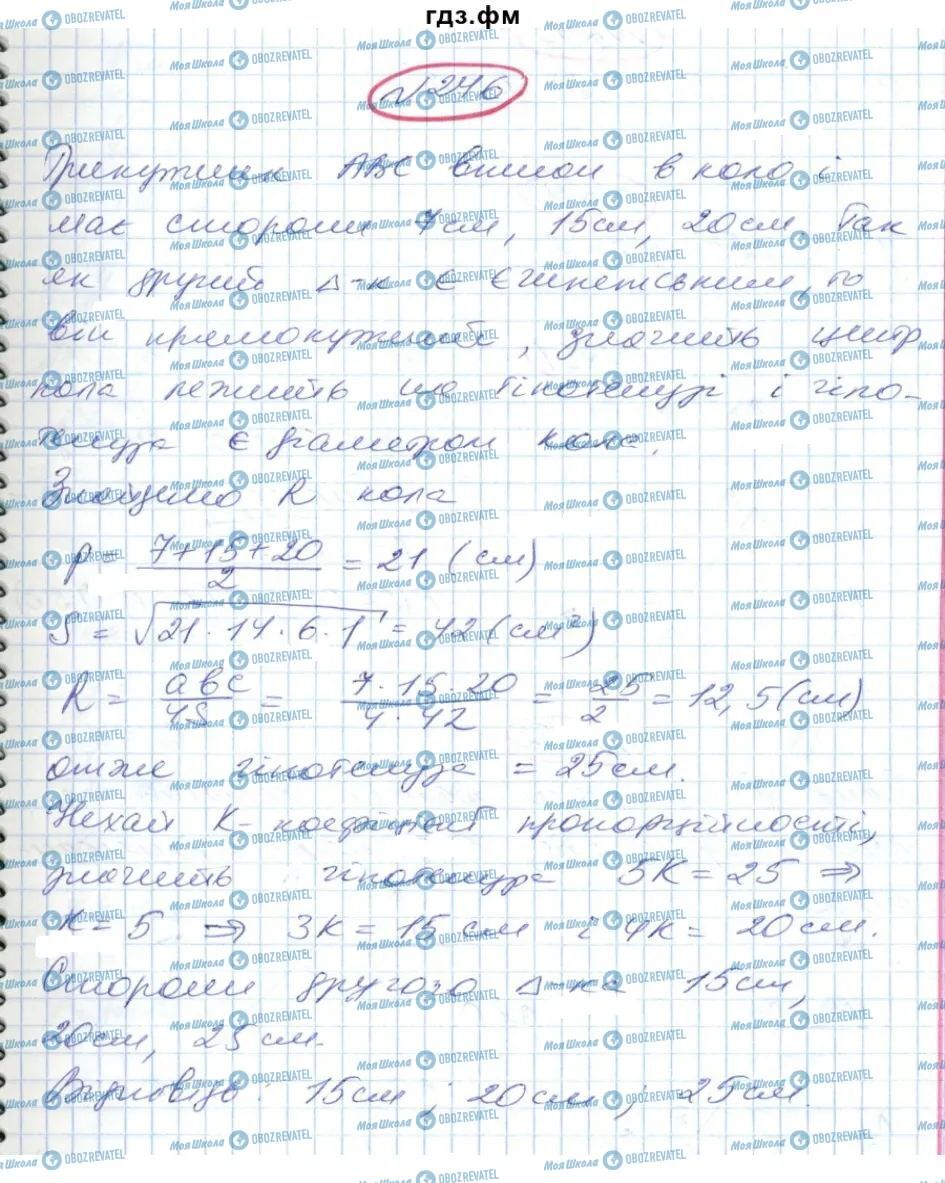 гдз.фм
№246
Трикутник ABC вписан в коло і
має сторони 7см, 15см, 20см. Так
як другий Δ-к є єгипетським, то
він прямокутний, значить центр
кола лежить на гіпотенузі і гіпо-
тенуза є діаметром кола.
Знайдемо R кола
p = (7+15+20)/2 = 21 (см)
S = √(21·14·6·1) = 42 (см²)
R = abc/4S = (7·15·20)/(4·42) = 25/2 = 12,5 (см)
отже гіпотенуза = 25см.
Нехай К - коефіцієнт пропорційності,
значить гіпотенуза 5К = 25 ⇒
К = 5 ⇒ 3К = 15 см і 4К = 20см.
Сторони другого Δ-ка 15см,
20см, 25см.
Відповідь: 15см; 20см; 25см.
МояШкола OBOZREVATEL